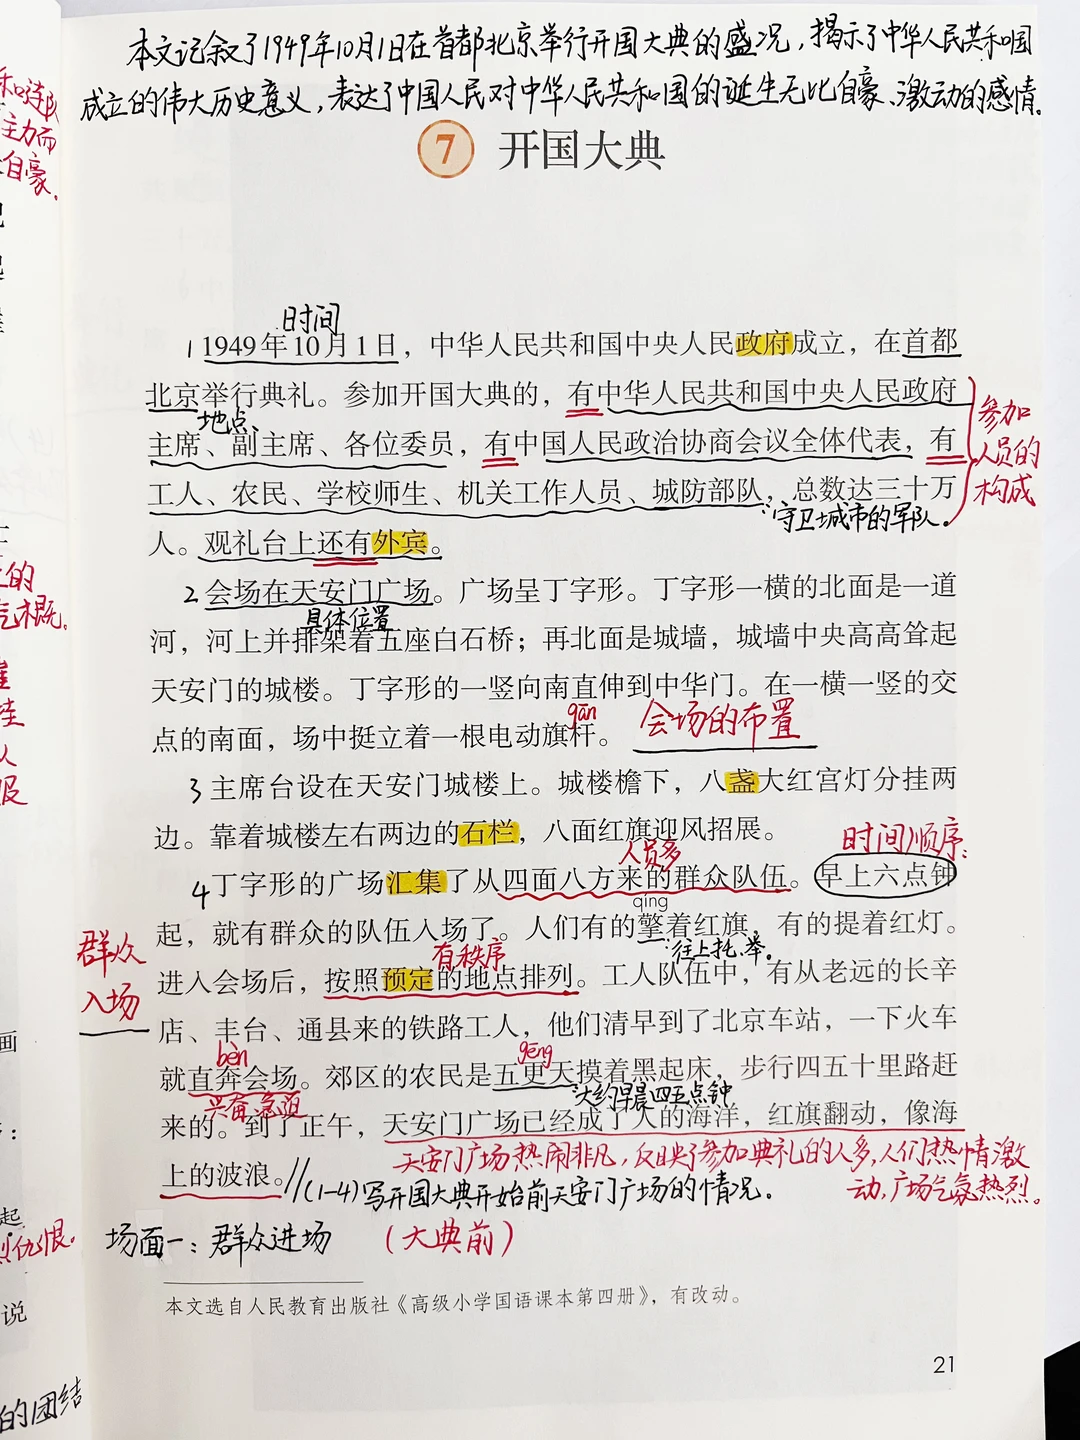 本文记叙了1949年10月1日在首都北京举行开国大典的盛况，揭示了中华人民共和国
成立的伟大历史意义，表达了中国人民对中华人民共和国的诞生无比自豪、激动的感情。
7 开国大典
时间
1 1949年10月1日，中华人民共和国中央人民政府成立，在首都
北京举行典礼。参加开国大典的，有中华人民共和国中央人民政府
地点
主席、副主席、各位委员，有中国人民政治协商会议全体代表，有
工人、农民、学校师生、机关工作人员、城防部队，总数达三十万
参加
人员的
构成
守卫城市的军队。
人。观礼台上还有外宾。
2 会场在天安门广场。广场呈丁字形。丁字形一横的北面是一道
具体位置
河，河上并排架着五座白石桥；再北面是城墙，城墙中央高高耸起
天安门的城楼。丁字形的一竖向南直伸到中华门。在一横一竖的交
gān
点的南面，场中挺立着一根电动旗杆。
会场的布置
3 主席台设在天安门城楼上。城楼檐下，八盏大红宫灯分挂两
边。靠着城楼左右两边的石栏，八面红旗迎风招展。
人员多
时间顺序：
4 丁字形的广场汇集了从四面八方来的群众队伍。早上六点钟
qíng
起，就有群众的队伍入场了。人们有的擎着红旗，有的提着红灯。
往上托、举。
有秩序
群众
入场
进入会场后，按照预定的地点排列。工人队伍中，有从老远的长辛
店、丰台、通县来的铁路工人，他们清早到了北京车站，一下火车
bèn
gēng
就直奔会场。郊区的农民是五更天摸着黑起床，步行四五十里路赶
兴奋、急迫
大约早晨四五点钟
来的。到了正午，天安门广场已经成了人的海洋，红旗翻动，像海
上的波浪。
天安门广场热闹非凡，反映了参加典礼的人多，人们热情激
动，广场气氛热烈。
(1-4)写开国大典开始前天安门广场的情况。
场面一：群众进场 （大典前）
本文选自人民教育出版社《高级小学国语课本第四册》，有改动。
21
主力而
自豪。
的
气概。
仇恨。
画
起
说
的团结